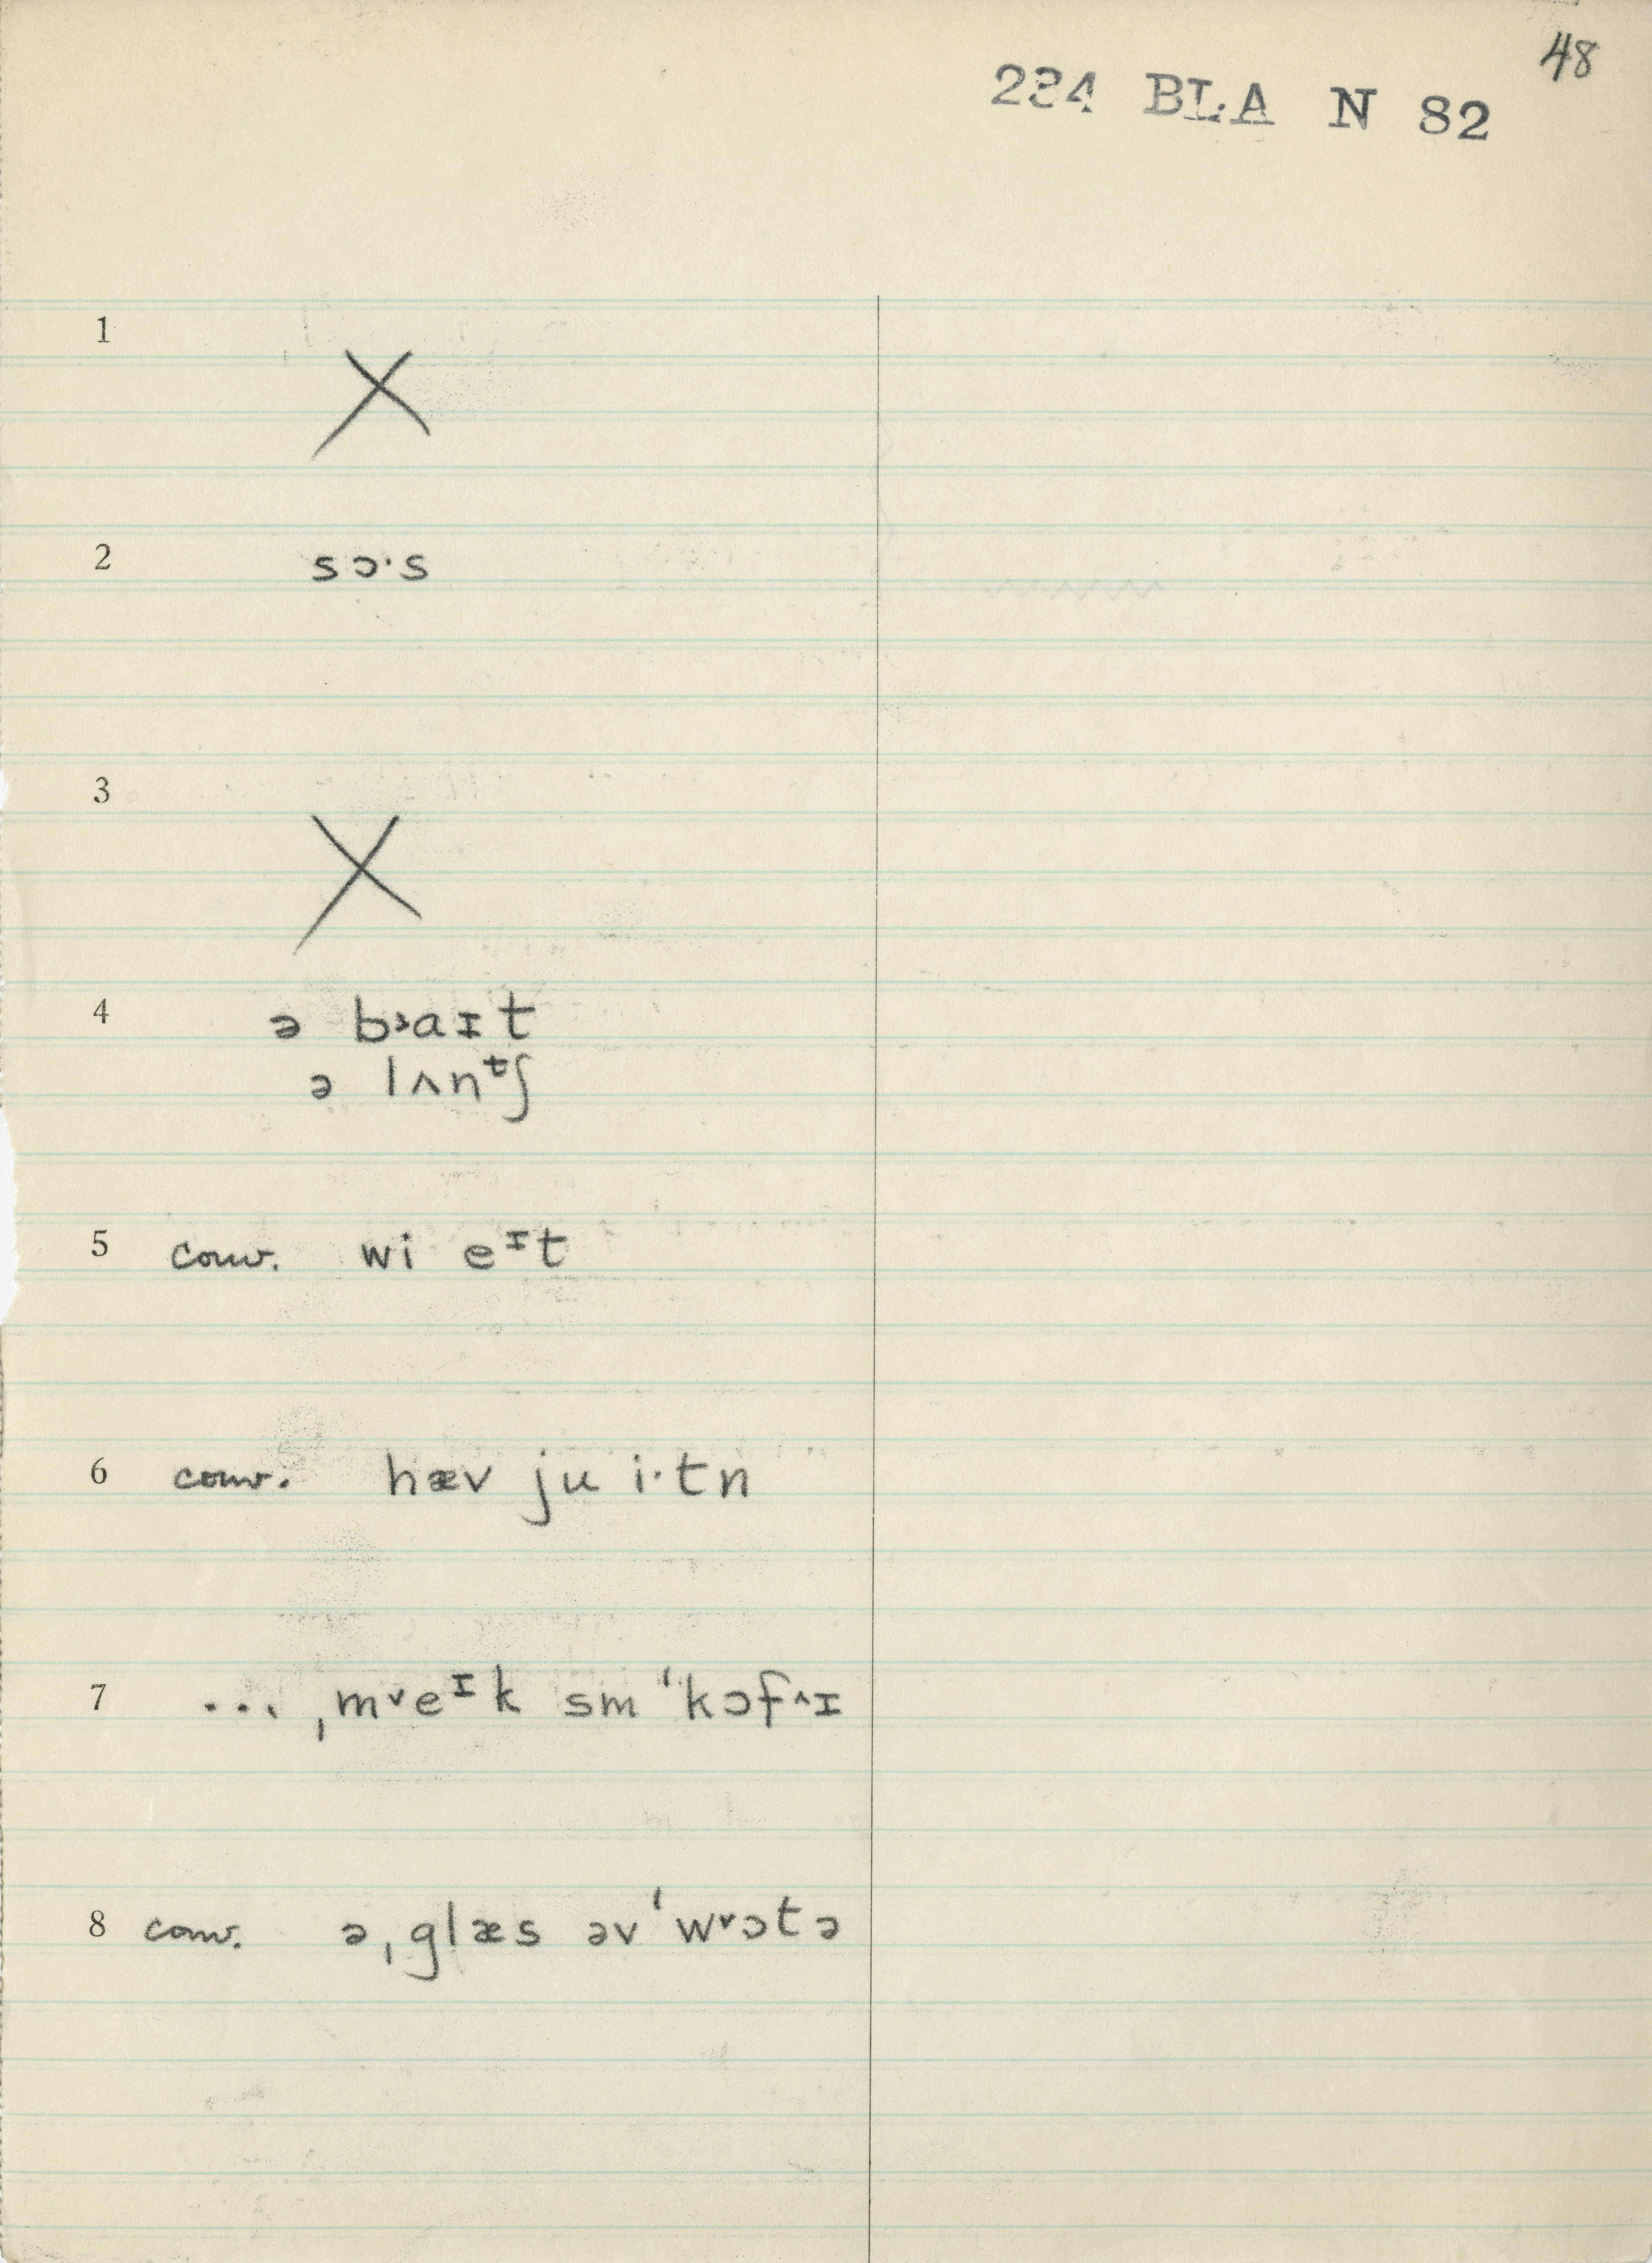 48
234 BLA N 82
1
X
2 sɔ·s
3
X
4 ə b˒aɪt
ə lʌnᵗʃ
5 conv. wi eᶦt
6 conv. hæv ju i·tn
7 ... ˌm˅eᶦk sm ˈkɔf^ɪ
8 conv. ə ˌglæs əv ˈw˅ɔtə